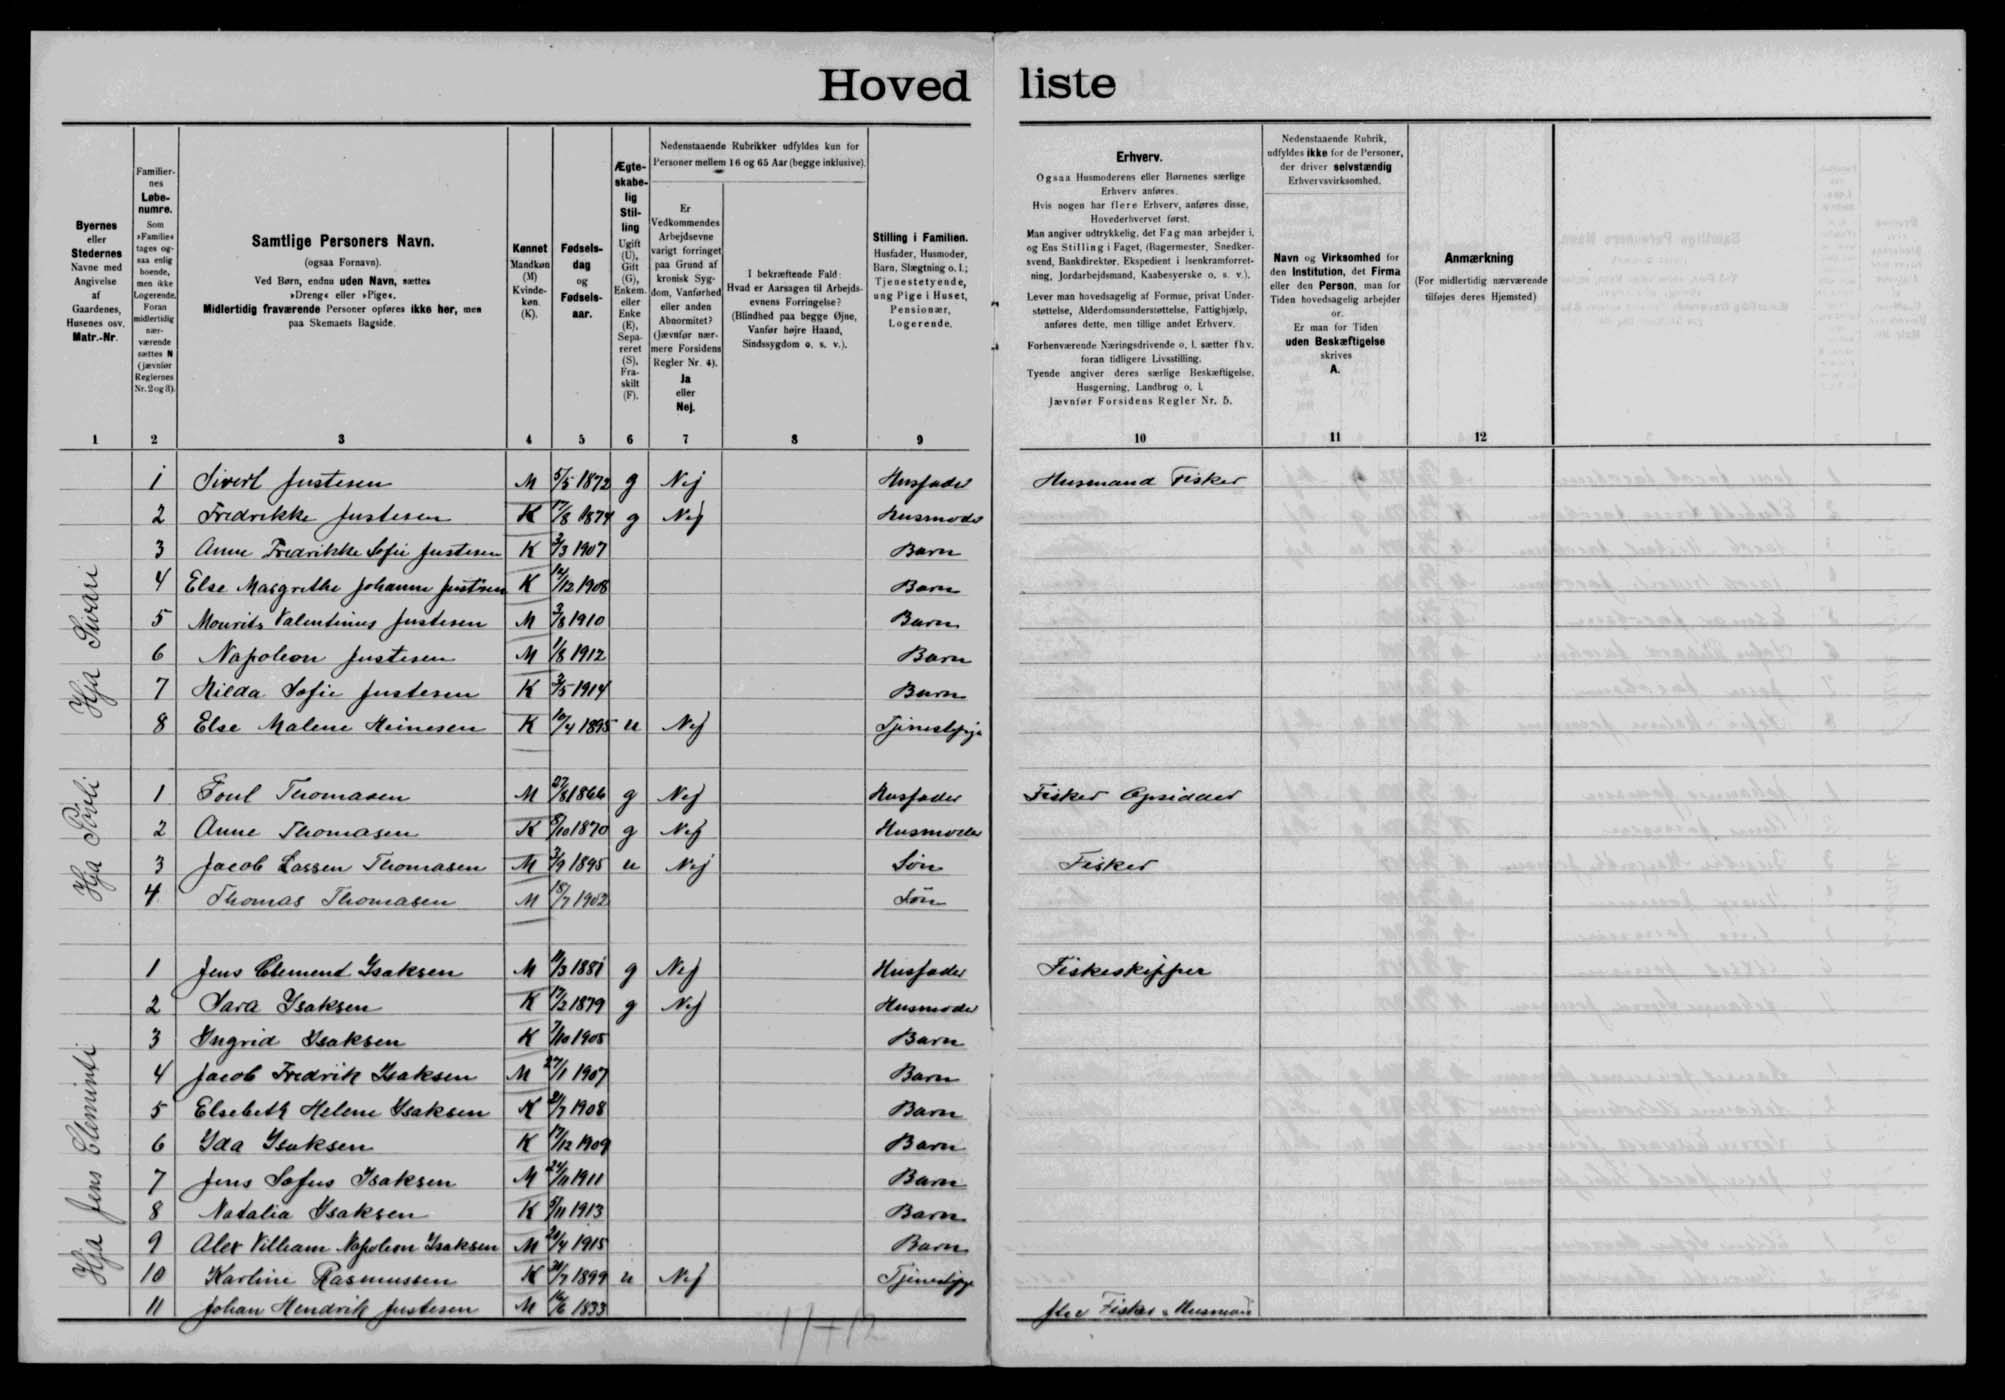 Hoved liste
Byernes
eller
Stedernes
Navne med
Angivelse
af
Gaardenes,
Husenes osv.
Matr.-Nr.
Familier-
nes
Løbe-
numre.
Som
»Familie«
tages og-
saa enlig
boende,
men ikke
Logerende.
Foran
midlertidig
nær-
værende
sættes N
(jævnfør
Reglernes
Nr. 2 og 3).
Samtlige Personers Navn.
(ogsaa Fornavn).
Ved Børn, endnu uden Navn, sættes
»Dreng« eller »Pige«.
Midlertidig fraværende Personer opføres ikke her, men
paa Skemaets Bagside.
Kønnet
Mandkøn
(M)
Kvinde-
køn.
(K).
Fødsels-
dag
og
Fødsels-
aar.
Ægte-
skabe-
lig
Stil-
ling
Ugift
(U),
Gift
(G),
Enkem.
eller
Enke
(E),
Sepa-
reret
(S),
Fra-
skilt
(F).
Nedenstaaende Rubrikker udfyldes kun for
Personer mellem 16 og 65 Aar (begge inklusive).
Er
Vedkommendes
Arbejdsevne
varigt forringet
paa Grund af
kronisk Syg-
dom, Vanførhed
eller anden
Abnormitet?
(Jævnfør nær-
mere Forsidens
Regler Nr. 4).
Ja
eller
Nej.
I bekræftende Fald:
Hvad er Aarsagen til Arbejds-
evnens Forringelse?
(Blindhed paa begge Øjne,
Vanfør højre Haand,
Sindssygdom o. s. v.).
Stilling i Familien.
Husfader, Husmoder,
Barn, Slægtning o. l.;
Tjenestetyende,
ung Pige i Huset,
Pensionær,
Logerende.
Erhverv.
Ogsaa Husmoderens eller Børnenes særlige
Erhverv anføres.
Hvis nogen har flere Erhverv, anføres disse,
Hovederhvervet først.
Man angiver udtrykkelig, det Fag man arbejder i,
og Ens Stilling i Faget, (Bagermester, Snedker-
svend, Bankdirektør, Ekspedient i Isenkramforret-
ning, Jordarbejdsmand, Kaabesyerske o. s. v.).
Lever man hovedsagelig af Formue, privat Under-
støttelse, Alderdomsunderstøttelse, Fattighjælp,
anføres dette, men tillige andet Erhverv.
Forhenværende Næringsdrivende o. l. sætter fhv.
foran tidligere Livsstilling.
Tyende angiver deres særlige Beskæftigelse,
Husgerning, Landbrug o. l.
Jævnfør Forsidens Regler Nr. 5.
Nedenstaaende Rubrik,
udfyldes ikke for de Personer,
der driver selvstændig
Erhvervsvirksomhed.
Navn og Virksomhed for
den Institution, det Firma
eller den Person, man for
Tiden hovedsagelig arbejder
for.
Er man for Tiden
uden Beskæftigelse
skrives
A.
Anmærkning
(For midlertidig nærværende
tilføjes deres Hjemsted)
1 2 3 4 5 6 7 8 9 10 11 12
Hja Sivari
1 Sivert Justesen M 5/5 1872 g Nej Husfader Husmand Fisker
2 Fredrikke Justesen K 17/8 1874 g Nej Husmoder
3 Anne Fredrikke Sofie Justesen K 2/3 1907 Barn
4 Else Margrethe Johanne Justesen K 12/12 1908 Barn
5 Mourits Valentinus Justesen M 2/8 1910 Barn
6 Napoleon Justesen M 1/8 1912 Barn
7 Hilda Sofie Justesen K 2/5 1914 Barn
8 Else Malene Heinesen K 10/4 1895 u Nej Tjenestepige
Hja Póvli
1 Poul Thomasen M 27/8 1866 g Nej Husfader Fisker Opsidder
2 Anne Thomasen K 8/10 1870 g Nej Husmoder
3 Jacob Lassen Thomasen M 2/9 1895 u Nej Søn Fisker
4 Thomas Thomasen M 18/7 1902 Søn
Hja Jens Cleminti
1 Jens Clement Isaksen M 11/3 1881 g Nej Husfader Fiskeskipper
2 Sara Isaksen K 17/2 1879 g Nej Husmoder
3 Ingrid Isaksen K 7/10 1905 Barn
4 Jacob Fredrik Isaksen M 27/1 1907 Barn
5 Elsebeth Helene Isaksen K 21/7 1908 Barn
6 Ida Isaksen K 17/12 1909 Barn
7 Jens Sofus Isaksen M 24/11 1911 Barn
8 Natalia Isaksen K 5/11 1913 Barn
9 Alex Villiam Napoleon Isaksen M 20/4 1915 Barn
10 Karline Rasmussen K 21/7 1899 u Nej Tjenestepige
11 Johan Hendrik Justesen M 16/6 1833 fhv Fisker & Husmand
11+12